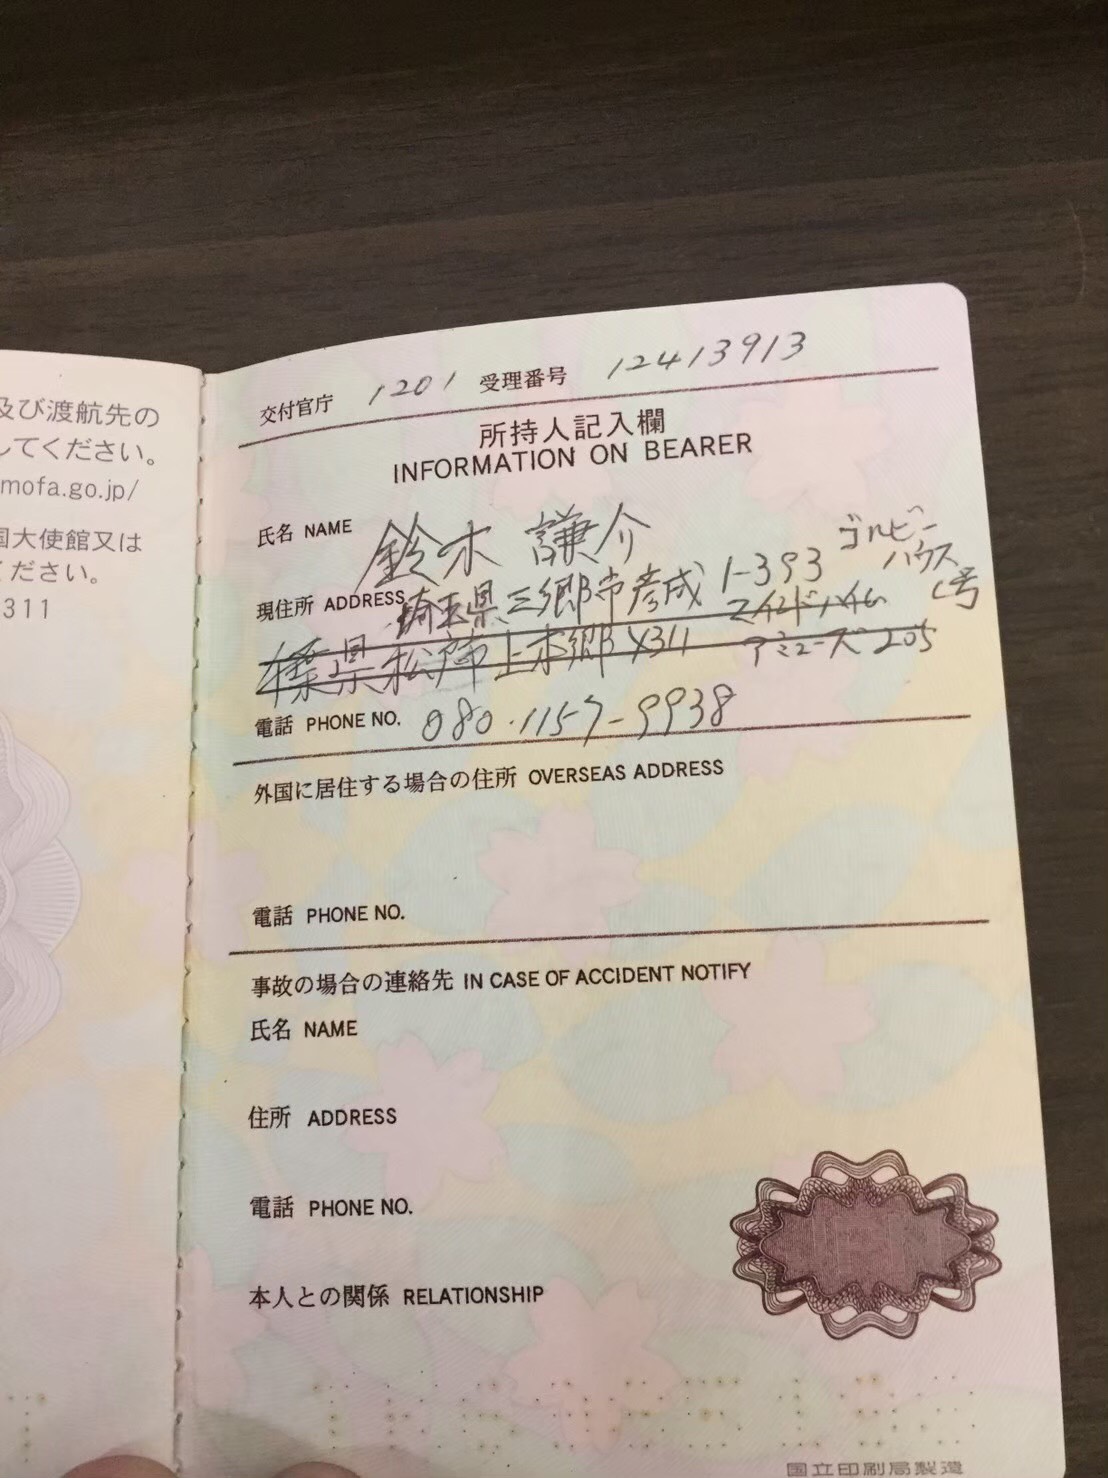 及び渡航先の
してください。
mofa.go.jp/
国大使館又は
ください。
311
交付官庁 1201 受理番号 12413913
所持人記入欄
INFORMATION ON BEARER
氏名 NAME 鈴木 謙介
現住所 ADDRESS 埼玉県三郷市彦成 1-393 ゴルビーハウス
県松戸市上本郷 205
電話 PHONE NO. 080-1157-9938
外国に居住する場合の住所 OVERSEAS ADDRESS
電話 PHONE NO.
事故の場合の連絡先 IN CASE OF ACCIDENT NOTIFY
氏名 NAME
住所 ADDRESS
電話 PHONE NO.
本人との関係 RELATIONSHIP
国立印刷局製造